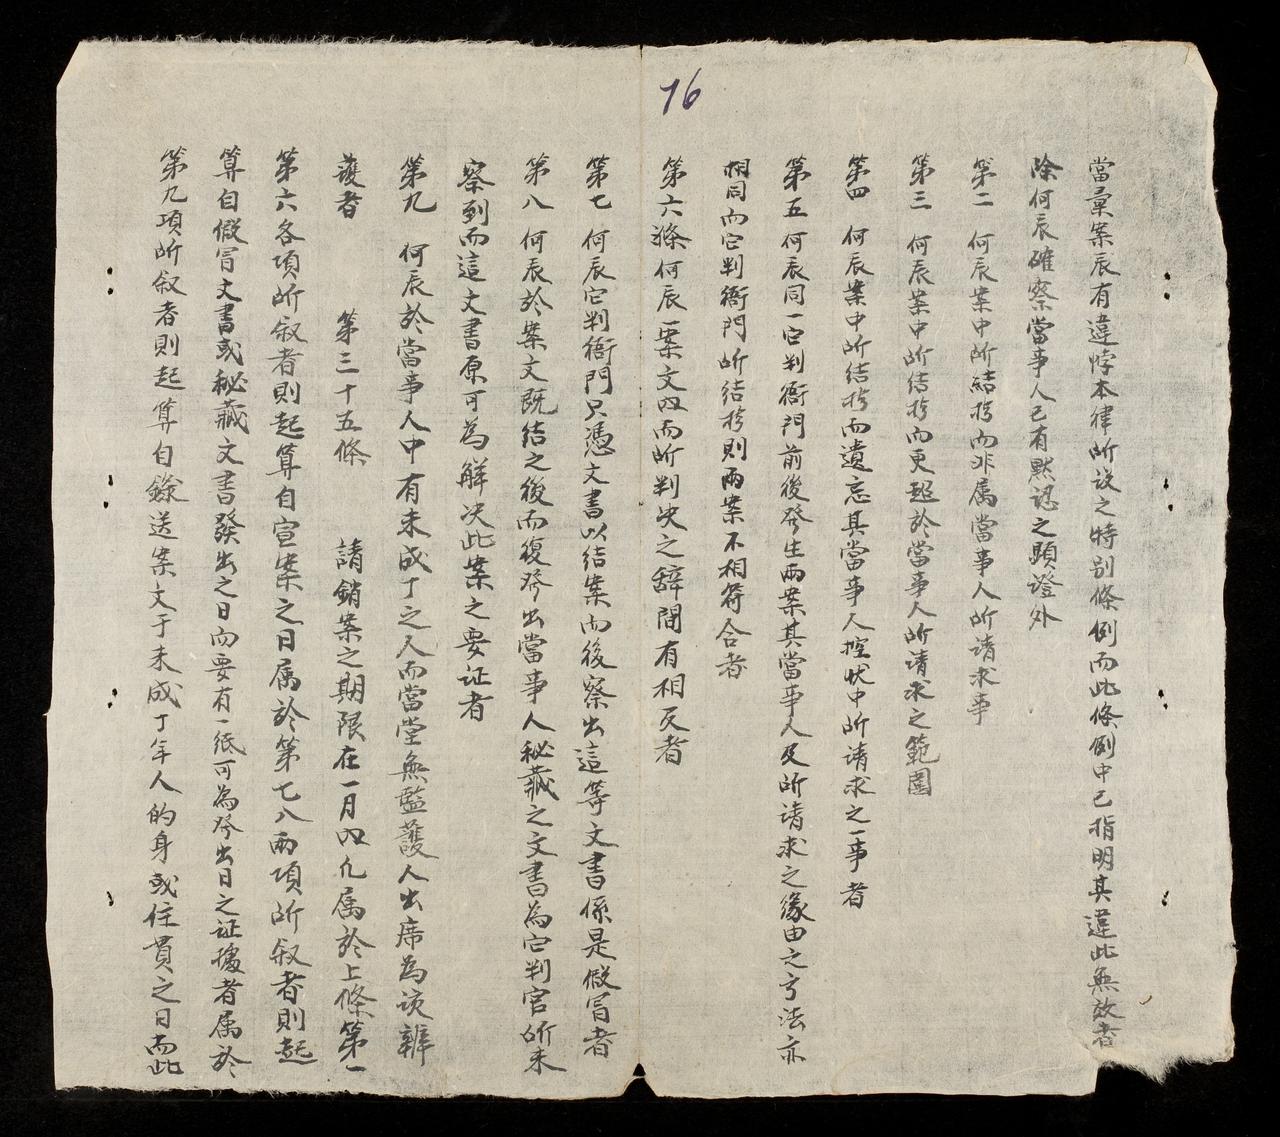 76
當彙案辰有違悖本律所设之特别條例而此條例中已指明其違此無效者
除何辰確察當事人已有默認之顕證外
第二 何辰案中所結拷而非属當事人所请求事
第三 何辰案中所结拷而更超於當事人所请求之範圍
第四 何辰案中所结拷而遺忘其當事人控状中所请求之一事者
第五 何辰同一它判衙門前後發生两案其當事人及所请求之缘由之方法亦
相同而它判衙門所结拷則兩案不相符合者
第六條 何辰一案文内而所判决之辞間有相反者
第七 何辰它判衙門只憑文書以结案而後察出這等文書係是假冒者
第八 何辰於案文既结之後而復發出當事人秘藏之文書為它判官所未
察到而這文書原可為解决此案之要证者
第九 何辰於當事人中有未成丁之人而當堂無監護人出席為该辨
護者 第三十五條 請銷案之期限在一月内凡属於上條第一
第六各項所叙者則起算自宣案之日属於第七八兩項所叙者則起
算自假冒文書或秘藏文書發出之日而要有一紙可為發出日之证據者属於
第九項所叙者則起算自錄送案文于未成丁年人的身或住貫之日而此